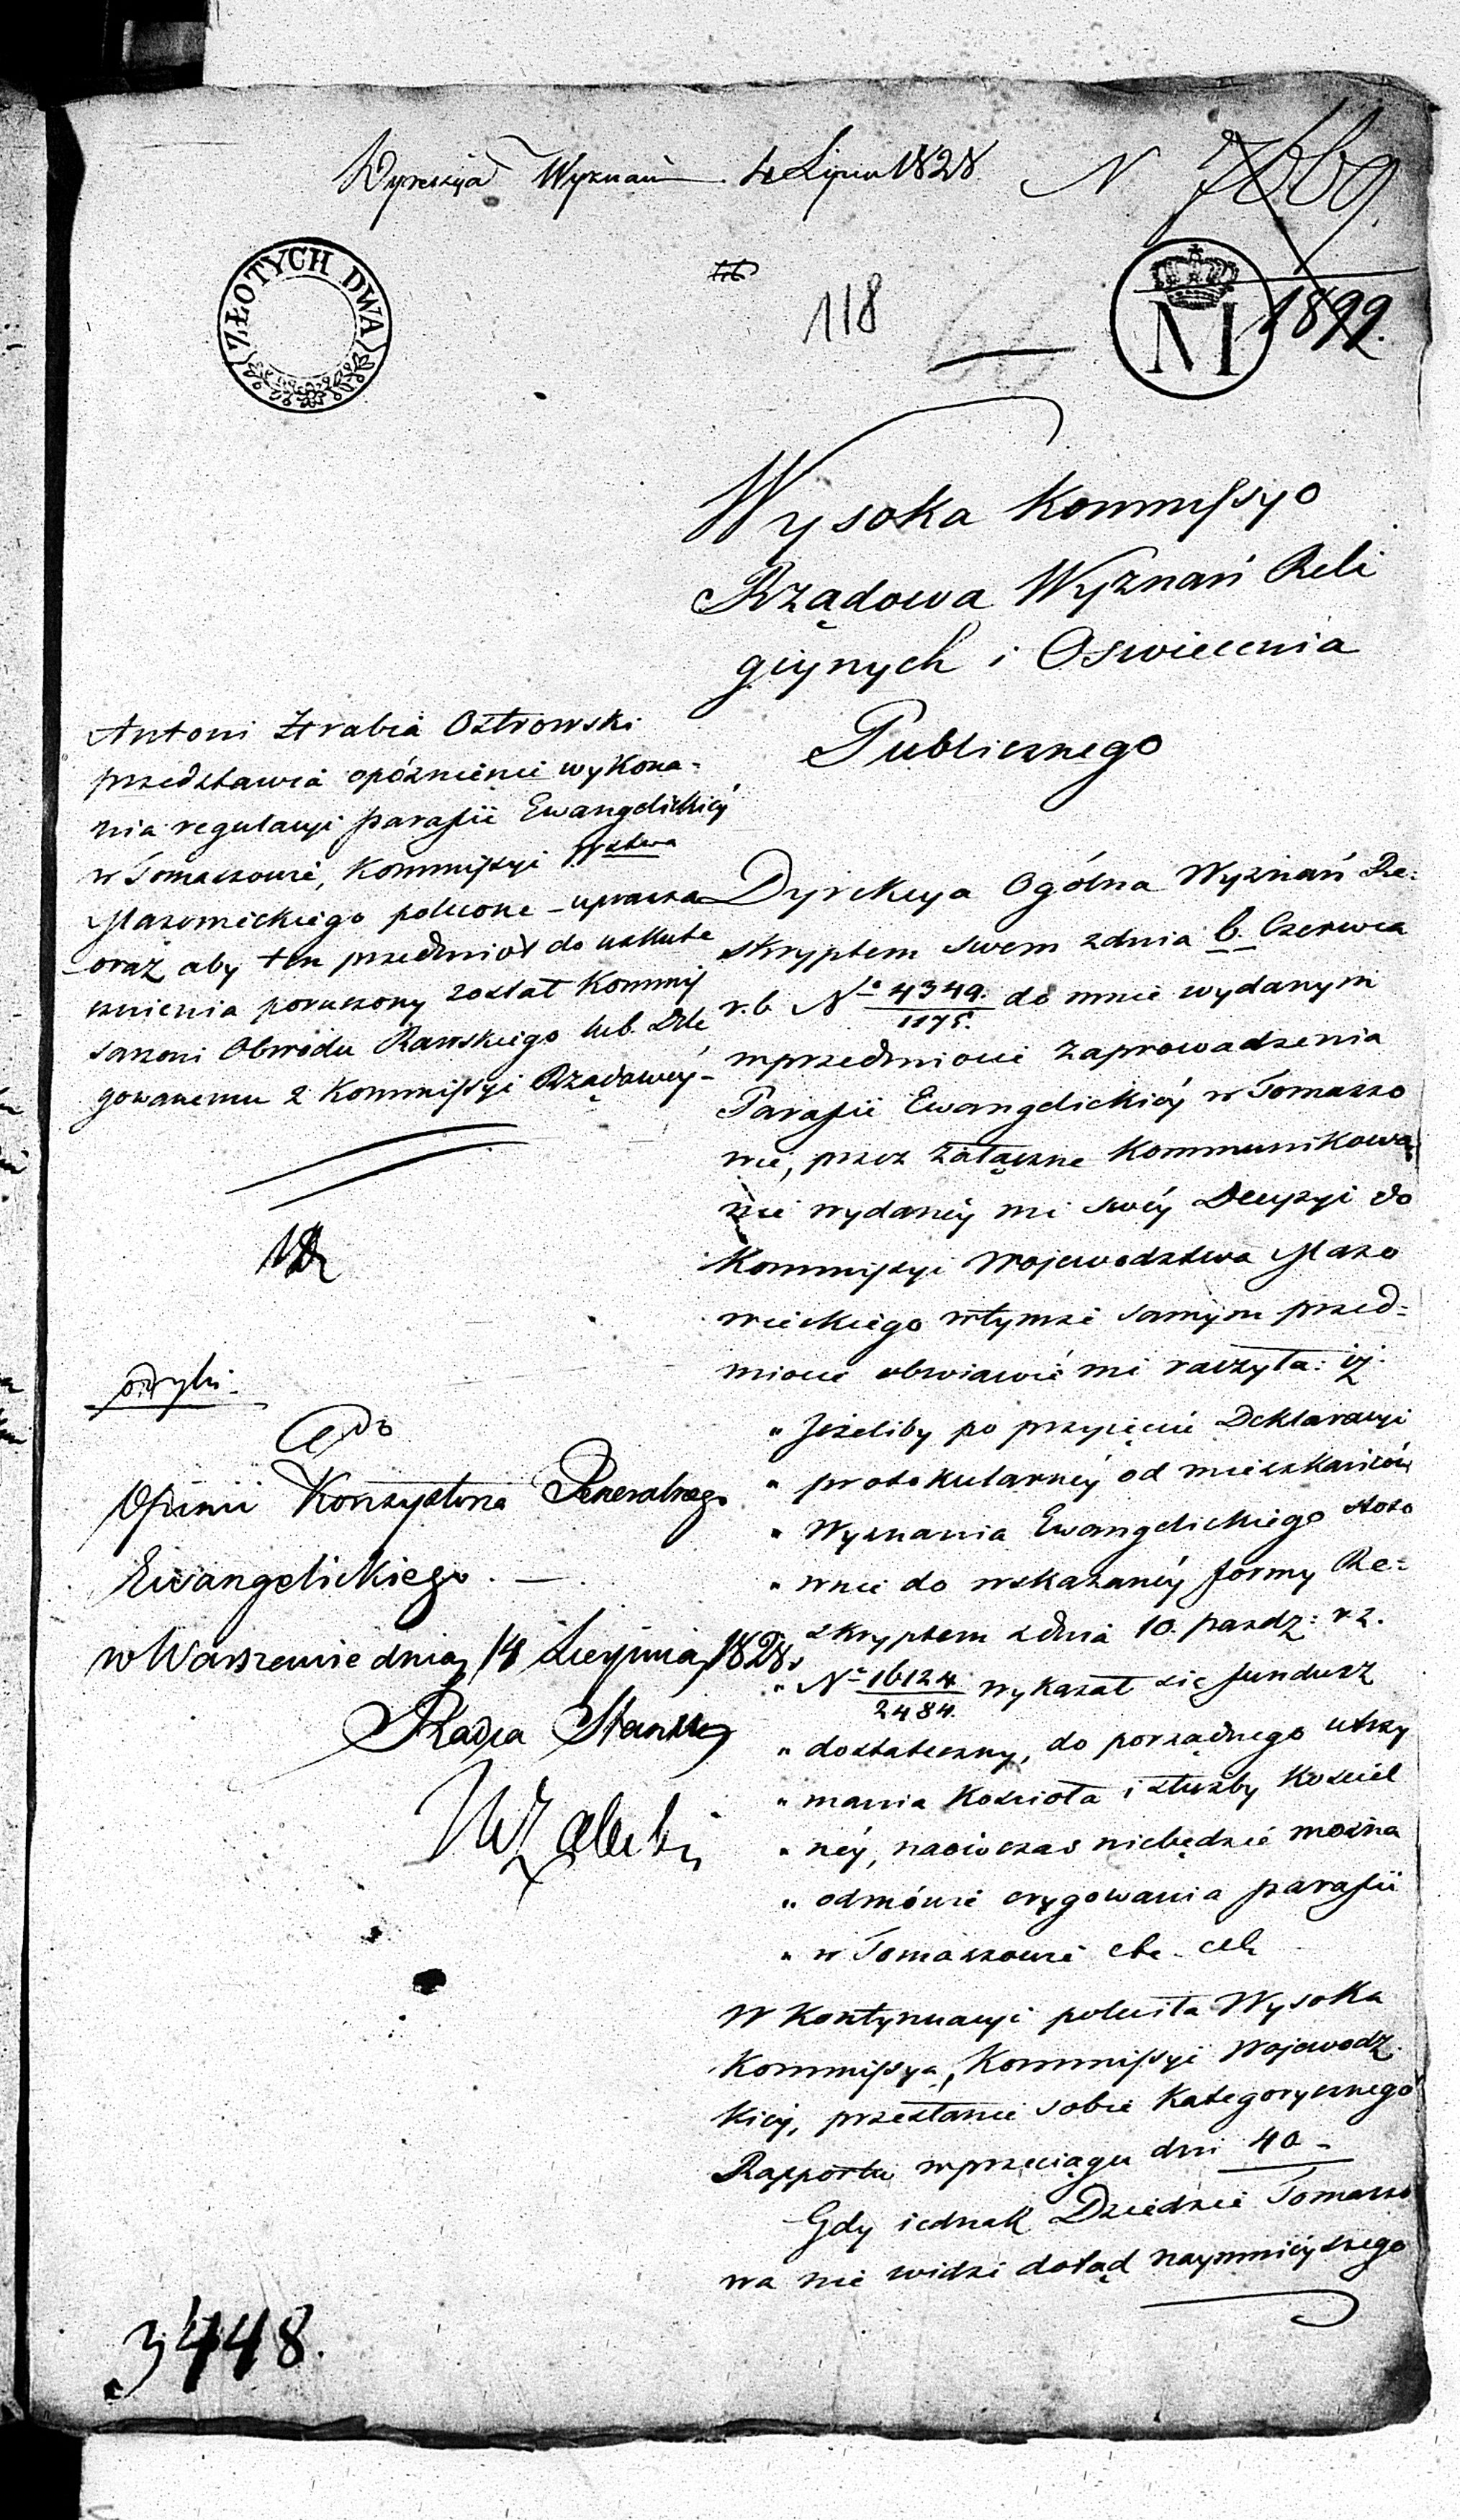 Dyrekcya Wyznań 4 Lipca 1828 N 7669.
1899.
118
ZŁOTYCH DWA
M
Wysoka Kommissyo
Rządowa Wyznań Reli
giynych i Oswiecenia
Publicznego
Antoni Hrabia Ostrowski
przedstawia opóźnienie wykona-
nia regulacyi parafii Ewangelickiéy
w Tomaszowie, Kommissyi Wztwa
Mazowieckiego polecone - uprasza
oraz aby ten przedmiot do uskute
cznienia poruczony został Kommis
sarzowi Obwodu Rawskiego lub Dele
gowanemu z Kommissyi Rządowéy -
Dyrekcya Ogólna Wyznań Re:
skryptem swem zdnia 6. Czerwca
r.b. No 4349./1175. do mnie wydanym
wprzedmiocie zaprowadzenia
Parafii Ewangelickiéy w Tomaszo
wie, przez załączne kommunikowa
nie wydanéy mi swéy Decyzyi do
Kommissyi Województwa Mazo
wieckiego wtymże samym przed=
miocie obwiawić mi raczyła: iż.
" Jeżeliby po przyięciu Deklaracyi
" protokularnéy od mieszkańców
" Wyznania Ewangelickiego stoso
" wnie do wskazanéy formy Re=
skryptem zdnia 10. pazdz: r.z.
" No 16124/2484. wykazał się fundusz
" dostateczny, do porządnego utrzy
" mania Kościoła i służby Kościel
" néy, naówczas niebędzie można
" odmówić erygowania parafii
" w Tomaszowie etc. etc.
W kontynuacyi poleciła Wysoka
Kommissya, Kommissyi Wojewódz
kiéy, przesłanie sobie Kategorycznego
Rapportu wprzeciągu dni 40 -
Gdy iednak Dziedzic Tomaszo
wa nie widzi dotąd naymnieyszego
do
Opinii Konsystorza Generalnego
Ewangelickiego. —
w Warszawie dnia 14 Sierpnia 1828.
Radca Stanu
Załuski
3448.